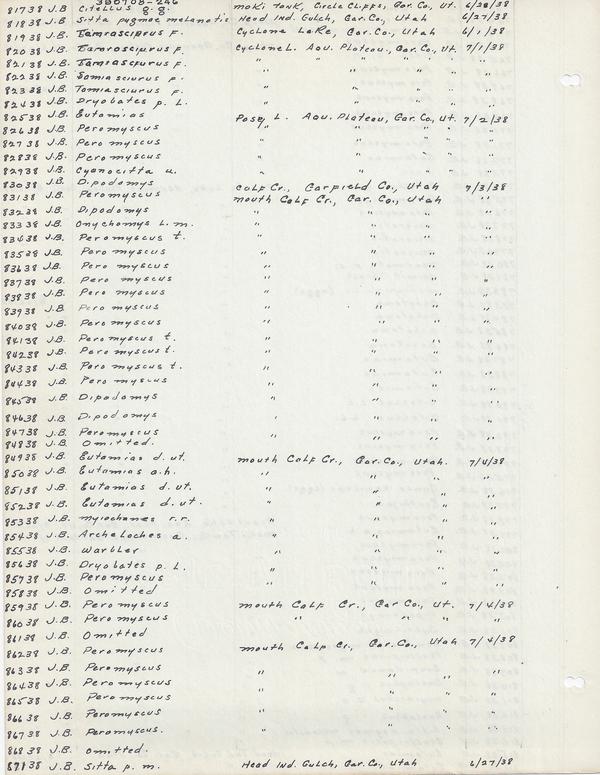 38070B-246
81738 J.B Citellus 8-81 Moki Tank, Circle Cliffs, Gar. Co, Ut. 6/28/38
81838 J.B. Sitta pygmae melanotis Head Ind. Gulch, Gar. Co., Utah 6/27/38
81938 J.B. Tamiasciurus f. Cyclone Lake, Gar. Co., Utah 6/1/38
82038 J.B. Tamiasciurus f. Cyclone L. Aqu. Plateau, Gar. Co., Ut. 7/1/38
82138 J.B. Tamiasciurus f. " " " " "
82238 J.B. Tamiasciurus f. " " " " "
82338 J.B. Tamiasciurus f. " " " " "
82438 J.B. Dryobates p. L. " " " " "
82538 J.B. Eutamias Posey L. Aqu. Plateau, Gar. Co., Ut. 7/2/38
82638 J.B. Peromyscus " " " " "
82738 J.B. Peromyscus " " " " "
82838 J.B. Peromyscus " " " " "
82938 J.B. Cyanocitta u. " " " " "
83038 J.B. Dipodomys Calf Cr., Garfield Co., Utah 7/3/38
83138 J.B. Peromyscus Mouth Calf Cr., Gar. Co., Utah "
83238 J.B. Dipodomys " " " "
83338 J.B. Onychomys L. m. " " " "
83438 J.B. Peromyscus t. " " " "
83538 J.B. Peromyscus " " " "
83638 J.B. Peromyscus " " " "
83738 J.B. Peromyscus " " " "
83838 J.B. Peromyscus " " " "
83938 J.B. Peromyscus " " " "
84038 J.B. Peromyscus " " " "
84138 J.B. Peromyscus t. " " " "
84238 J.B. Peromyscus t. " " " "
84338 J.B. Peromyscus t. " " " "
84438 J.B. Peromyscus " " " "
84538 J.B. Dipodomys " " " "
84638 J.B. Dipodomys " " " "
84738 J.B. Peromyscus " " " "
84838 J.B. Omitted.
84938 J.B. Eutamias d. ut. Mouth Calf Cr., Gar. Co., Utah. 7/4/38
85038 J.B. Eutamias a.h. " " " "
85138 J.B. Eutamias d. ut. " " " "
85238 J.B. Eutamias d. ut. " " " "
85338 J.B. Myiochanes r.r. " " " "
85438 J.B. Archeloches a. " " " "
85538 J.B. Warbler " " " "
85638 J.B. Dryobates p. L. " " " "
85738 J.B. Peromyscus " " " "
85838 J.B. Omitted
85938 J.B. Peromyscus Mouth Calf Cr., Gar Co., Ut. 7/4/38
86038 J.B. Peromyscus " " " "
86138 J.B. Omitted
86238 J.B. Peromyscus Mouth Calf Cr., Gar. Co., Utah 7/4/38
86338 J.B. Peromyscus " " " "
86438 J.B. Peromyscus " " " "
86538 J.B. Peromyscus " " " "
86638 J.B. Peromyscus " " " "
86738 J.B. Peromyscus. " " " "
86838 J.B. Omitted.
87138 J.B. Sitta p. m. Head Ind. Gulch, Gar Co, Utah 6/27/38